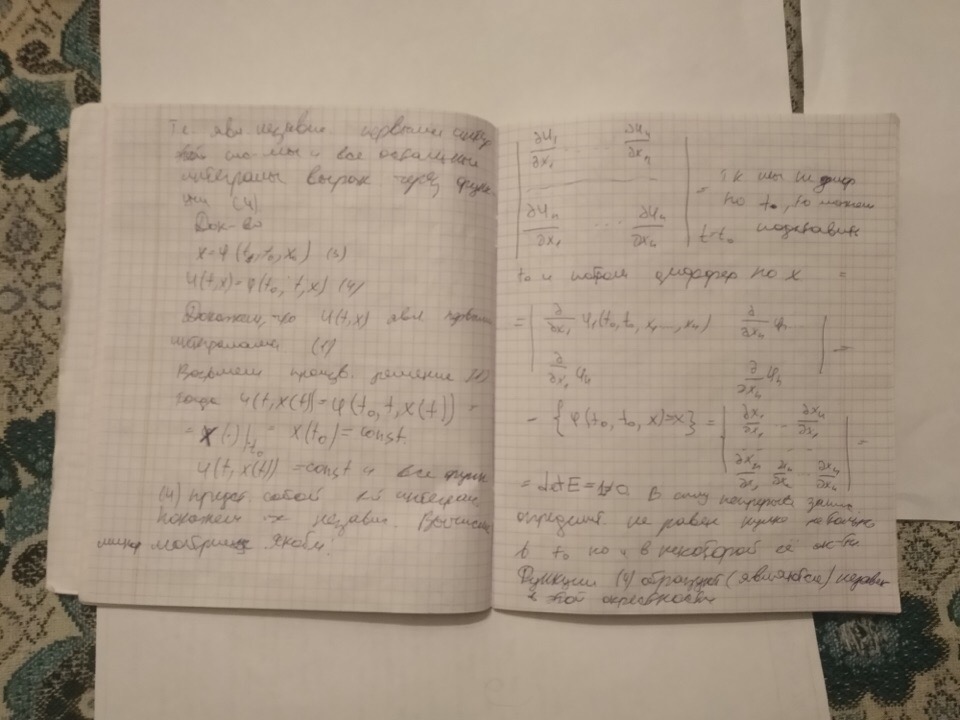 Т.е. явл независ. первыми интегр
этой сис-мы и все остальные
интегралы выраж. через функ-
ции (4)
Док-во
x=φ(t, t₀, x₀) (3)
Ψ(t,x)=φ(t₀, t, x) (4)
Докажем, что Ψ(t,x) явл первыми
интегралами (1)
Возьмем произв. решение (1)
тогда Ψ(t, x(t))=φ(t₀, t, x(t)) =
= x(·)|t₀ = x(t₀)=const.
Ψ(t, x(t)) =const и все функ
(4) предст. собой интеграл
покажем их независ. Вычислим
матрицы Якоби.
| ∂Ψ₁/∂x₁ ... ∂Ψ₁/∂xₙ |
| ∂Ψₙ/∂x₁ ... ∂Ψₙ/∂xₙ | = Т.к мы не диф по t₀, то можем подставить t=t₀
t₀ и потом диффер по x =
= | ∂/∂x₁ φ₁(t₀, t₀, x₁, ..., xₙ) ∂/∂xₙ φ₁... |
| ∂/∂x₁ φₙ ∂/∂xₙ φₙ | =
= {φ(t₀, t₀, x)=x} = | ∂x₁/∂x₁ ... ∂xₙ/∂x₁ |
| ∂xₙ/∂x₁ ∂xₙ/∂xₙ | =
= det E=1≠0 В силу непрерыв
определит. не равен нулю не только
в t₀ но и в некоторой её ок-ти
Функции (4) образуют (являются) независ
в этой окрестности